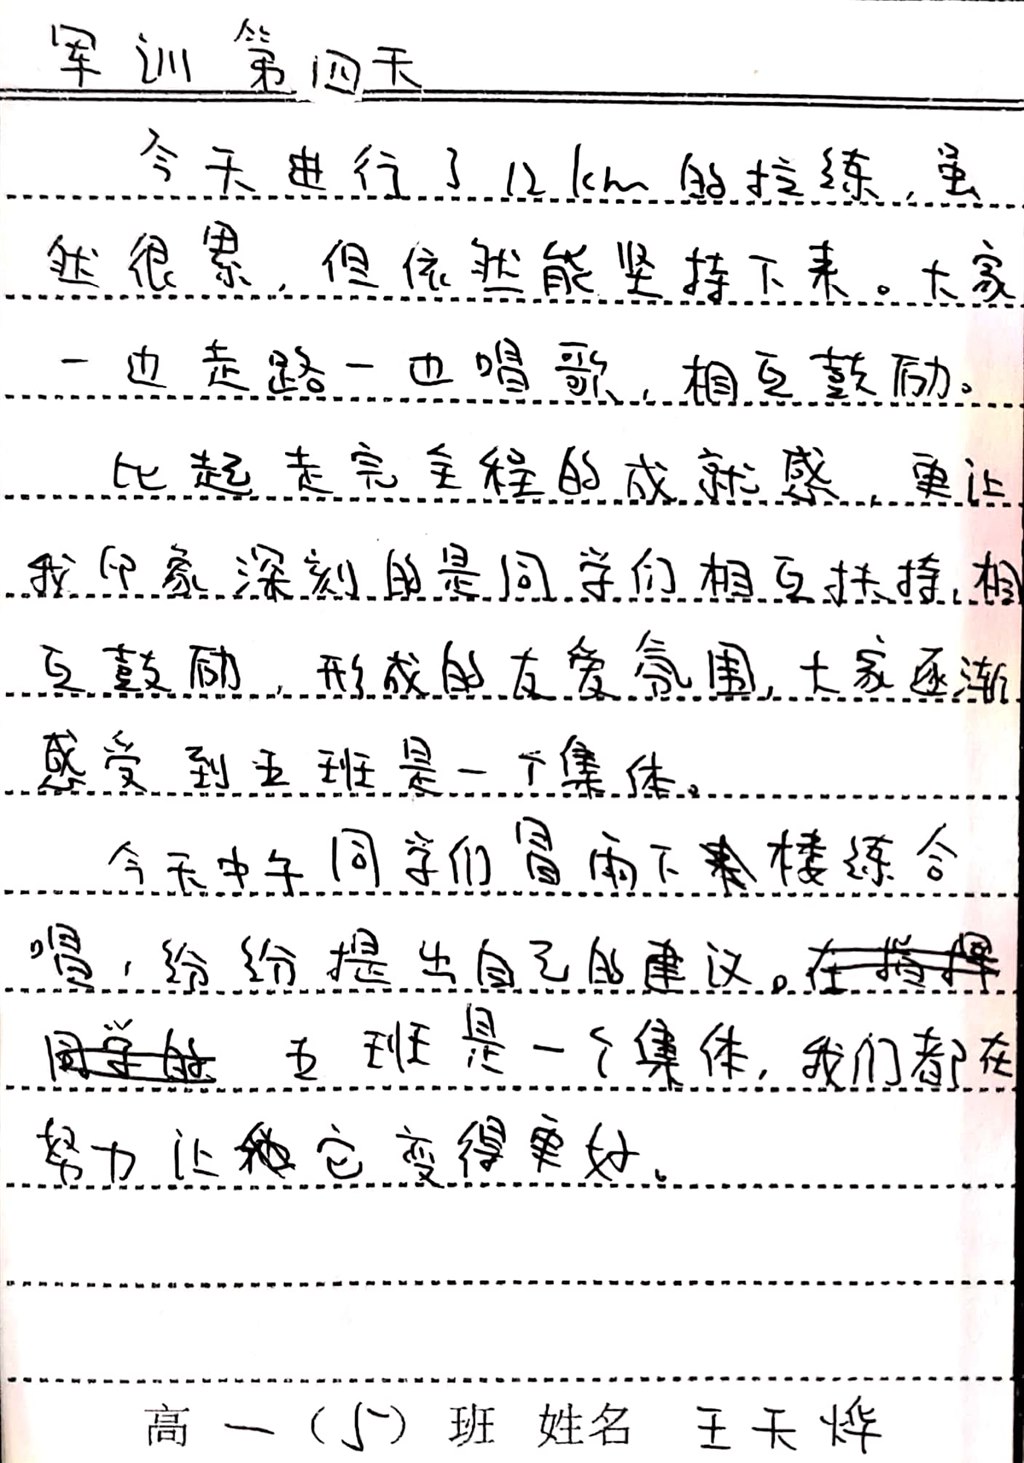 军训第四天
今天进行了12km的拉练,虽
然很累,但依然能坚持下来。大家
一边走路一边唱歌,相互鼓励。
比起走完全程的成就感,更让
我印象深刻的是同学们相互扶持,相
互鼓励,形成的友爱氛围,大家逐渐
感受到五班是一个集体。
今天中午同学们冒雨下楼练合
唱,纷纷提出自己的建议。在指挥
同学的 五班是一个集体,我们都在
努力让它变得更好。
高一(5)班 姓名 王天烨